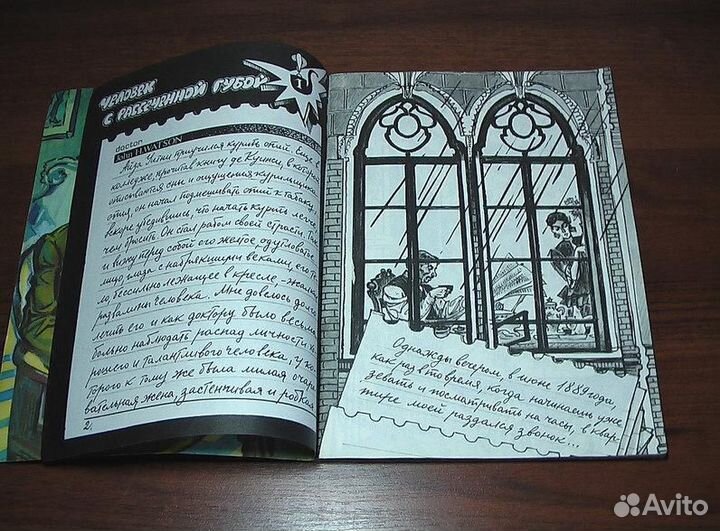 ЧЕЛОВЕК
С РАССЕЧЕННОЙ ГУБОЙ
1
doctor
John H.WATSON
Айза Уитни приучился курить опий. Еще в
колледже, прочитав книгу де Куинси, в которой
описываются сны и ощущения курильщика
опия, он начал подмешивать опий к табаку
вскоре убедившись, что начать курить легче,
чем бросить. Он стал рабом своей страсти.
и вижу перед собой его желтое одутловатое
лицо, глаза с набрякшими веками, его те-
ло, бессильно лежащее в кресле, – жалкие
развалины человека... Мне довелось долго
лечить его и как доктору было весьма
больно наблюдать распад личности хо-
рошего и талантливого человека, у ко-
торого к тому же была милая очаро-
вательная жена, застенчивая и робкая
2
Однажды вечером, в июне 1889 года,
как раз в то время, когда начинаешь уже
зевать и посматривать на часы, в квар-
тире моей раздался звонок...
Avito